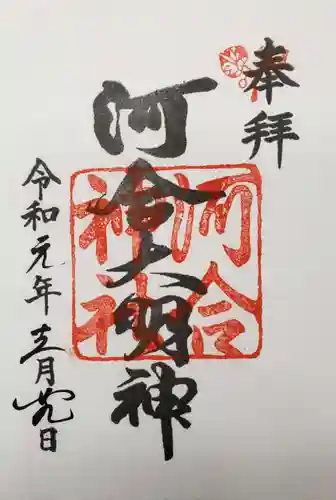 奉拝
河合大明神
河合神社
令和元年十二月廿九日